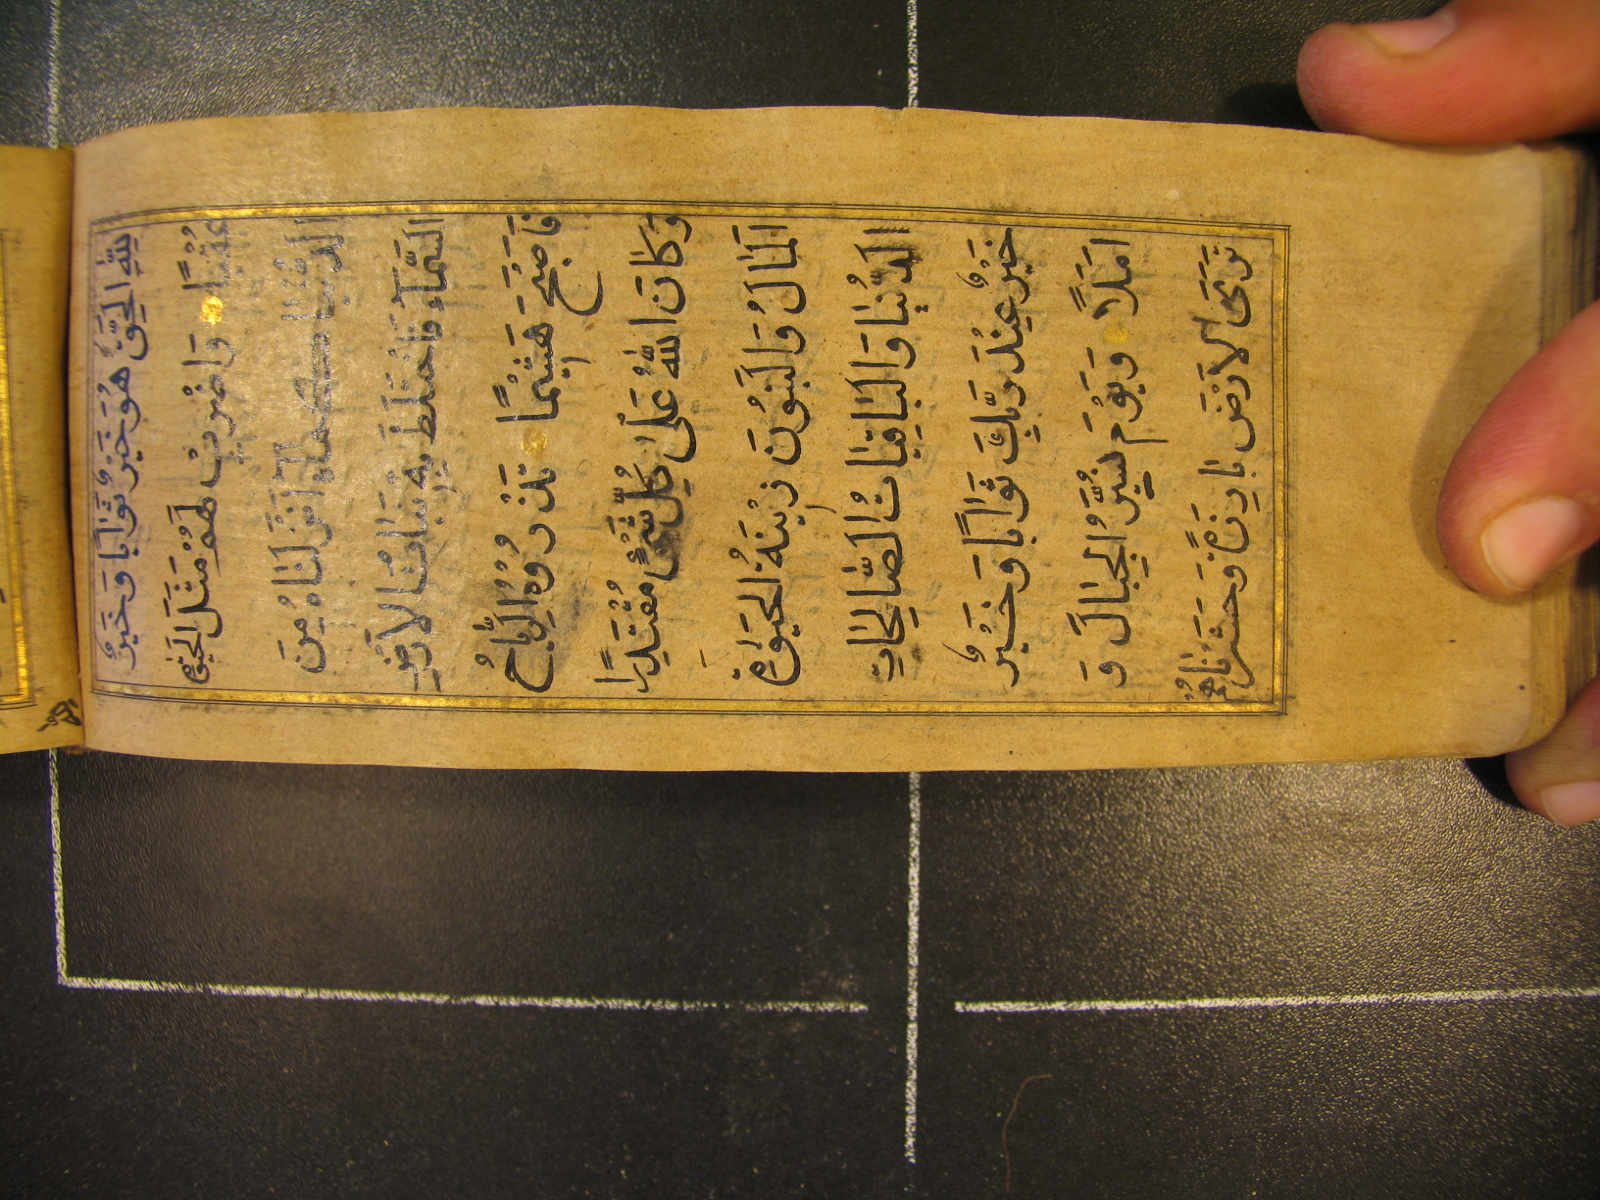 لِلّٰهِ الْحَقِّ هُوَ خَيْرٌ ثَوَابًا وَخَيْرٌ
عُقْبًا وَاضْرِبْ لَهُمْ مَثَلَ الْحَيٰوةِ
الدُّنْيَا كَمَاءٍ اَنْزَلْنَاهُ مِنَ
السَّمَآءِ فَاخْتَلَطَ بِهِ نَبَاتُ الْاَرْضِ
فَاَصْبَحَ هَشِيْمًا تَذْرُوْهُ الرِّيَّاحُ
وَكَانَ اللّٰهُ عَلٰى كُلِّ شَىْءٍ مُقْتَدِرًا
اَلْمَالُ وَالْبَنُوْنَ زِيْنَةُ الْحَيٰوةِ
الدُّنْيَا وَالْبَاقِيَاتُ الصَّالِحَاتِ
خَيْرٌ عِنْدَ رَبِّكَ ثَوَابًا وَخَيْرٌ
اَمَلًا وَيَوْمَ نُسَيِّرُ الْجِبَالَ وَ
تَرَى الْاَرْضَ بَارِزَةً وَحَشَرْنَاهُمْ